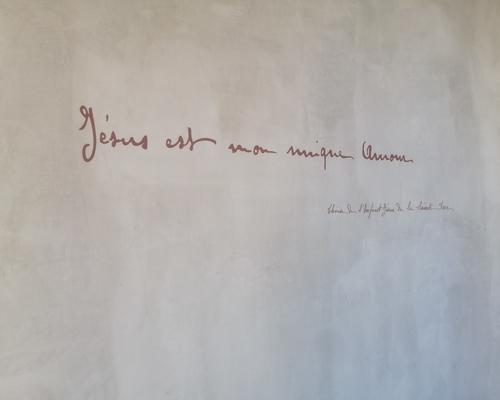 Jésus est mon unique Amour
Thérèse de l'Enfant Jésus de la Sainte Face